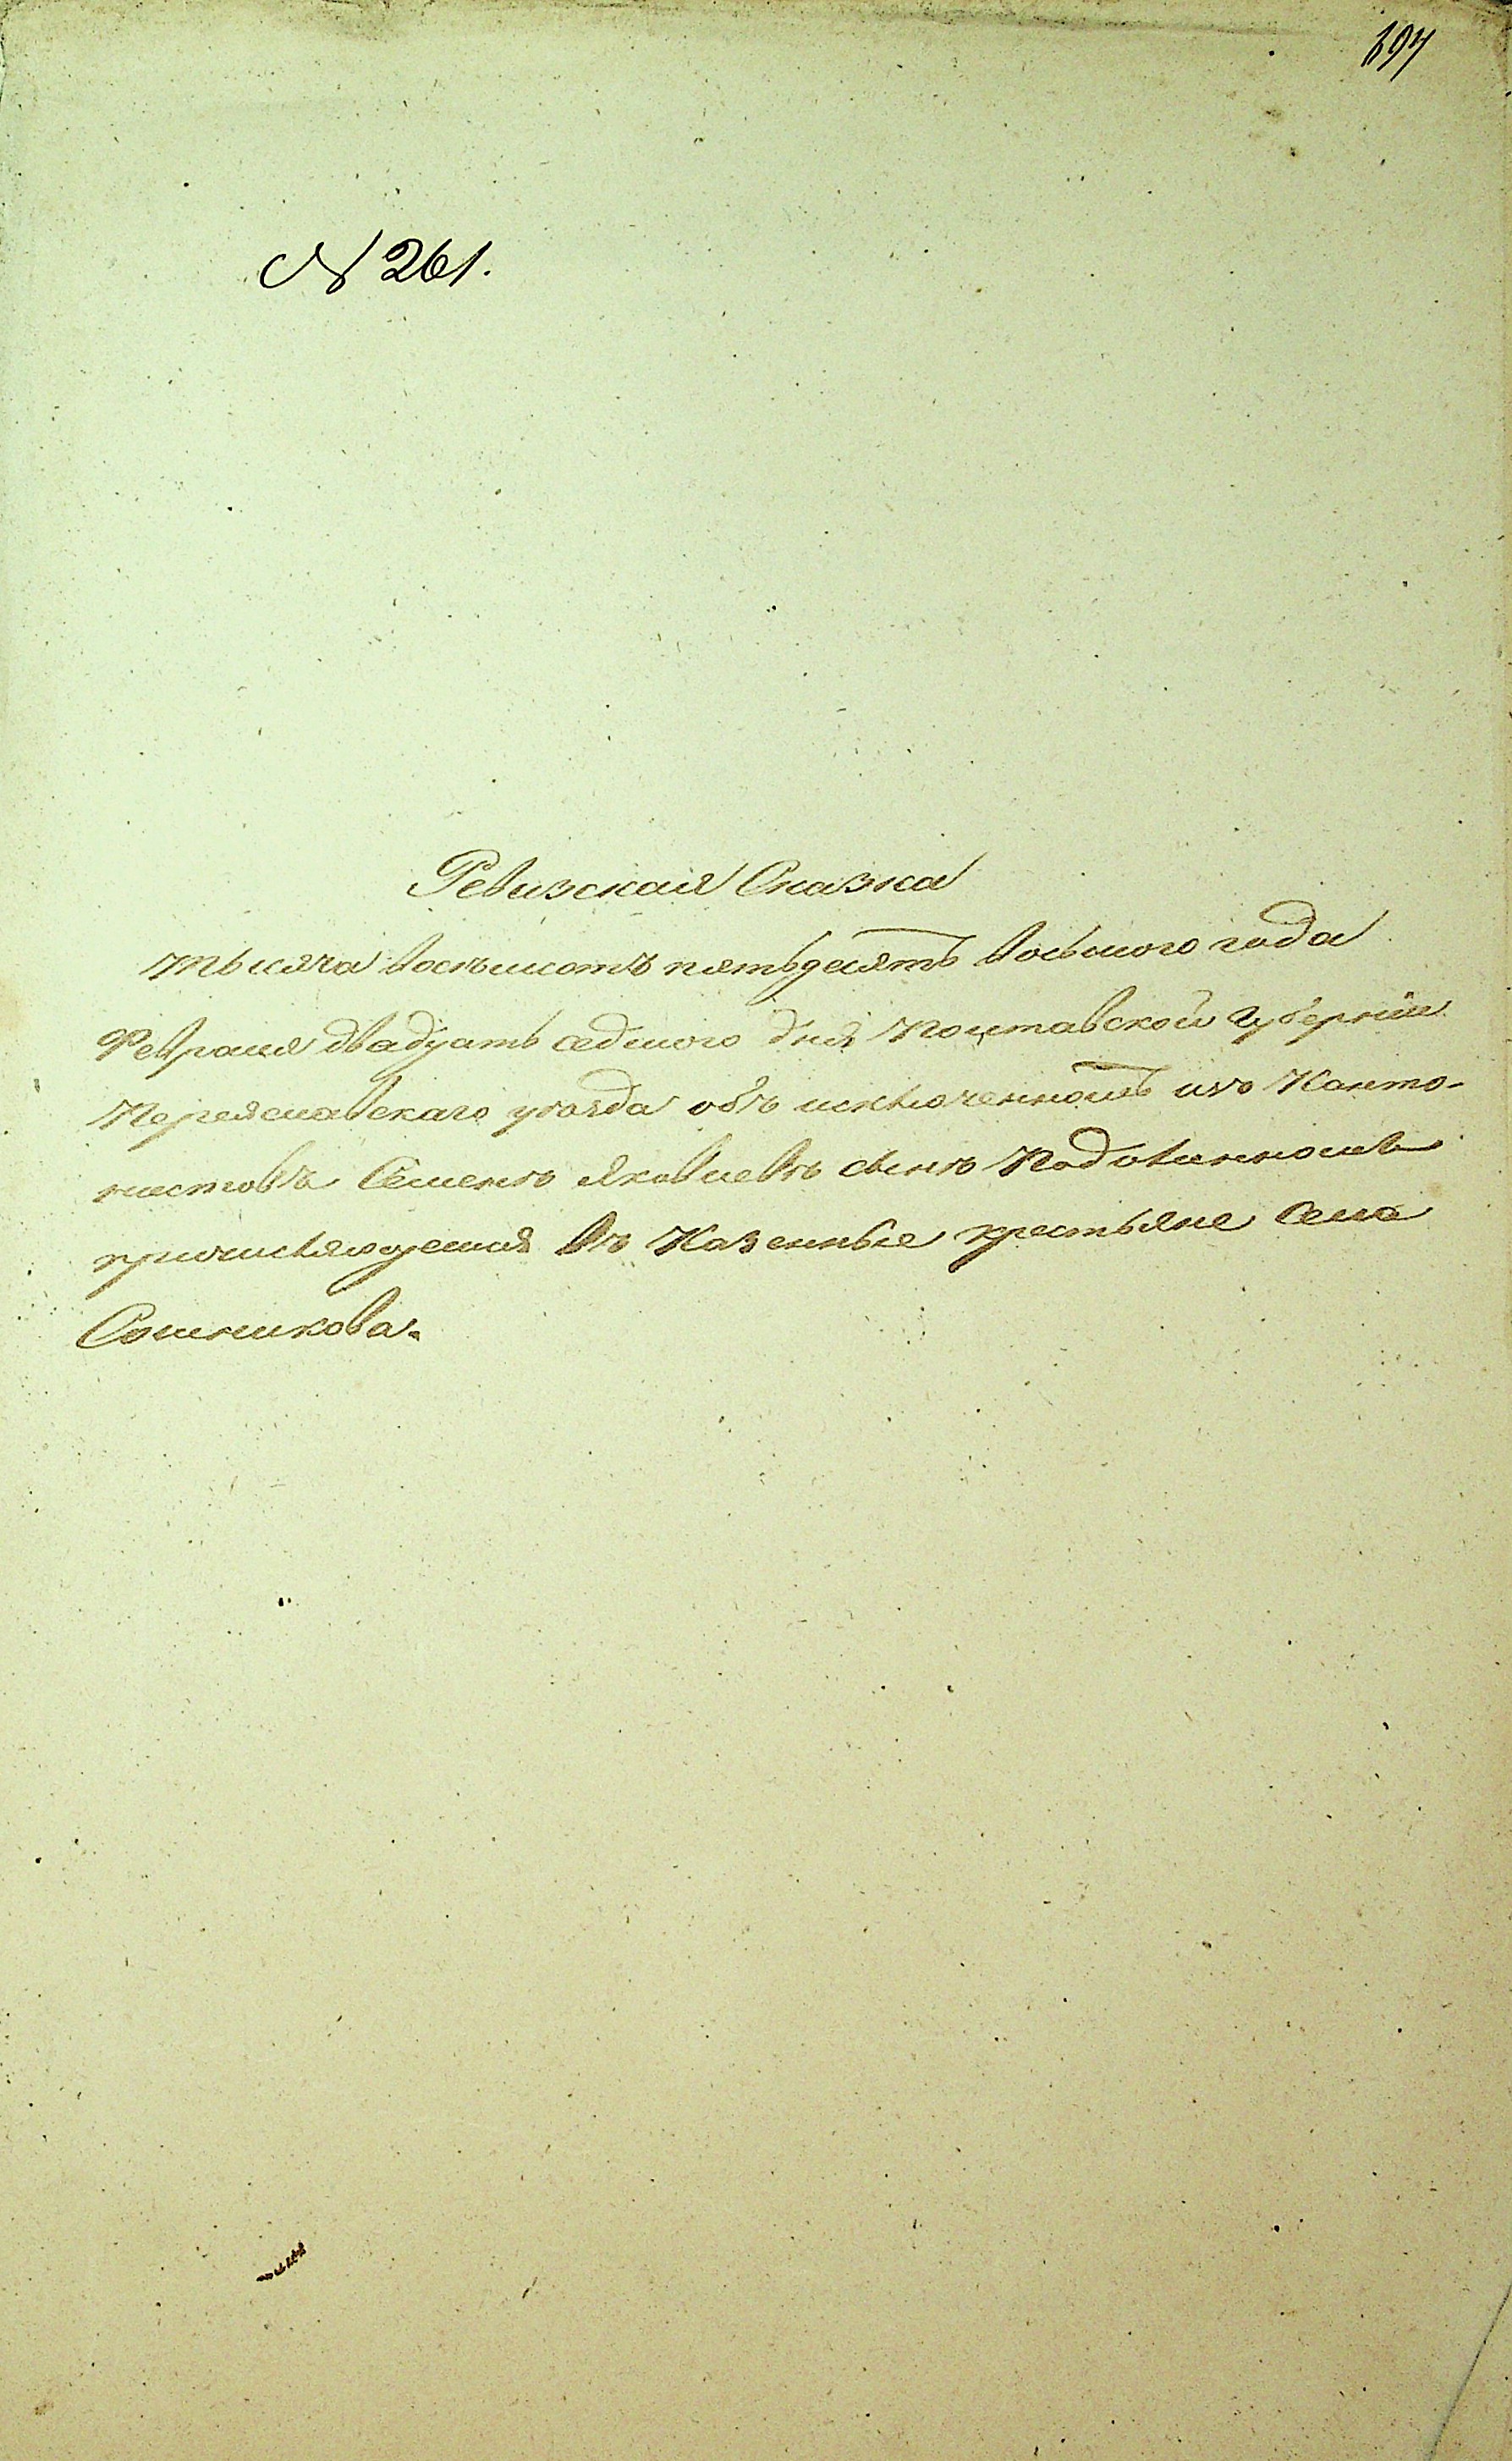 197
№ 261.
Ревизская Сказка
тысяча восемьсотъ пятьдесятъ восьмого года
Февраля двадцать седмого дня Полтавской Губерніи
Переяславскаго уѣзда объ исключенномъ изъ Канто-
нистовъ Семенъ Яковлевъ сынъ
причисляющемся въ Казенные крестьяне Села
Сошникова.